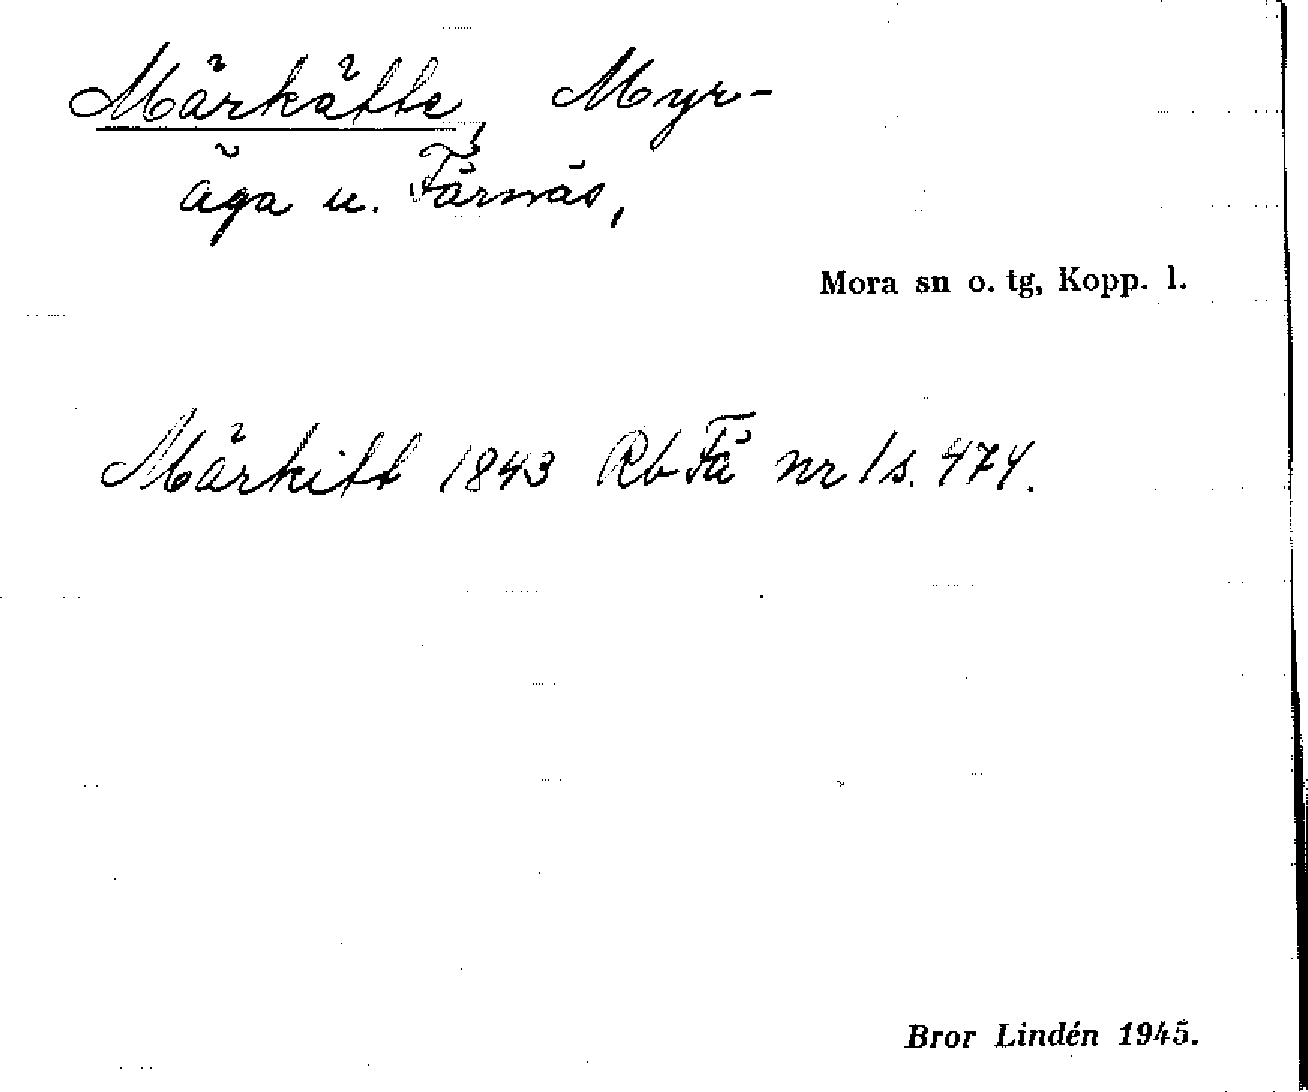 Märkätte, Myr-
äga u. Färnäs,
Mora sn o. tg, Kopp. l.
Märkitt 1843 Rb Fä nr 1 s. 474.
Bror Lindén 1945.